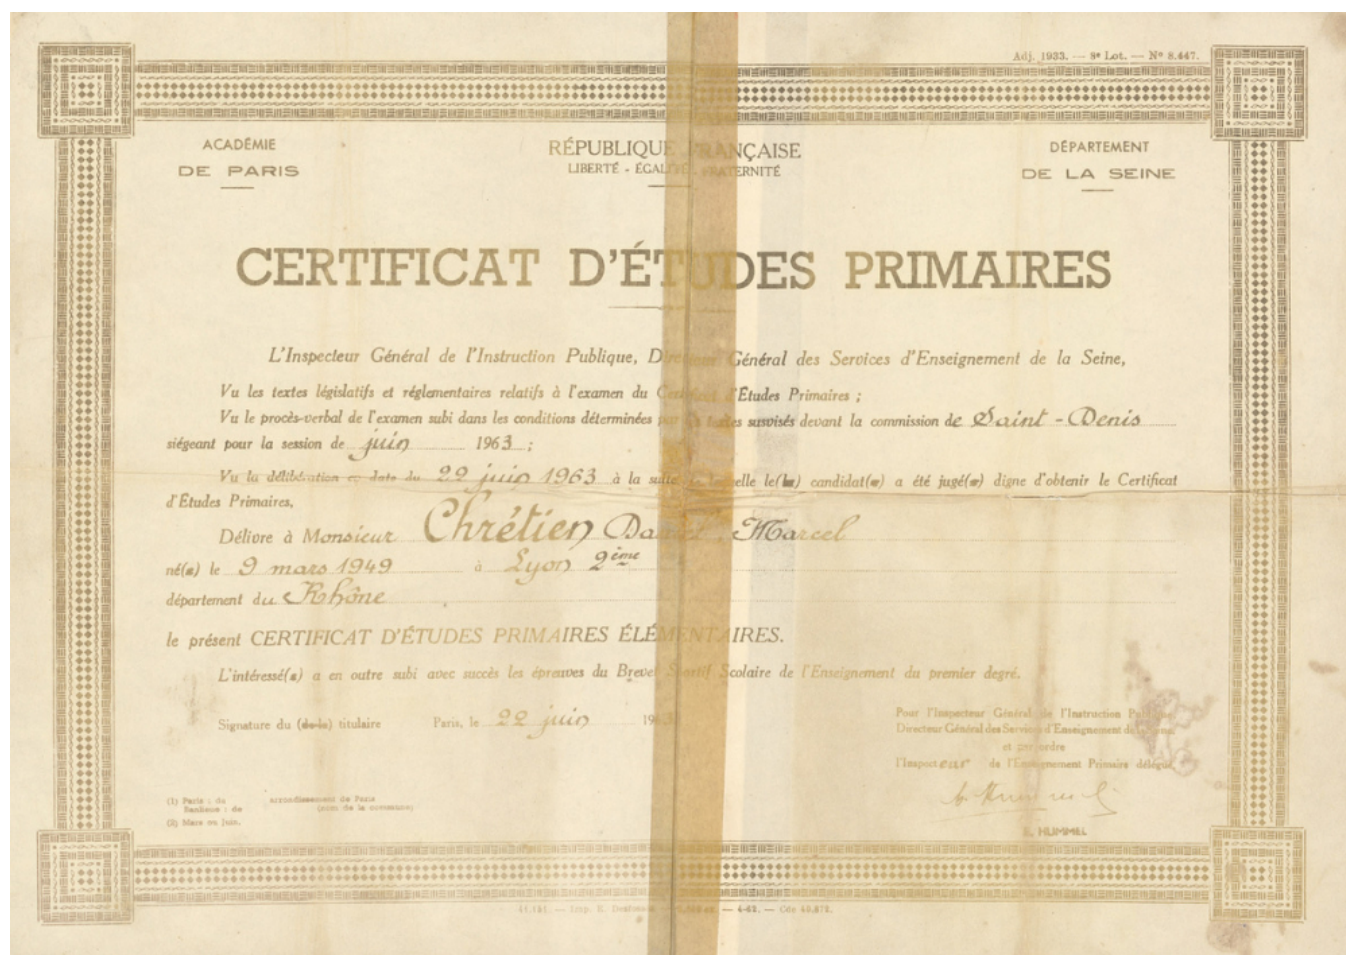 Adj. 1933. — 8e Lot. — No 8.447.
ACADÉMIE
DE PARIS
RÉPUBLIQUE FRANÇAISE
LIBERTÉ - ÉGALITÉ - FRATERNITÉ
DÉPARTEMENT
DE LA SEINE
CERTIFICAT D'ÉTUDES PRIMAIRES
L'Inspecteur Général de l'Instruction Publique, Directeur Général des Services d'Enseignement de la Seine,
Vu les textes législatifs et réglementaires relatifs à l'examen du Certificat d'Études Primaires ;
Vu le procès-verbal de l'examen subi dans les conditions déterminées par les textes susvisés devant la commission de Saint-Denis
siégeant pour la session de juin 1963 ;
Vu la délibération en date du 22 juin 1963 à la suite de laquelle le(la) candidat(e) a été jugé(e) digne d'obtenir le Certificat
d'Études Primaires,
Délivre à Monsieur Chrétien Daniel, Marcel
né(e) le 9 mars 1949 à Lyon 2ème
département du Rhône
le présent CERTIFICAT D'ÉTUDES PRIMAIRES ÉLÉMENTAIRES.
L'intéressé(e) a en outre subi avec succès les épreuves du Brevet Sportif Scolaire de l'Enseignement du premier degré.
Signature du (de la) titulaire
Paris, le 22 juin 1963
Pour l'Inspecteur Général de l'Instruction Publique
Directeur Général des Services d'Enseignement de la Seine
et par ordre
l'Inspecteur de l'Enseignement Primaire délégué,
HUMMEL
(1) Paris : du arrondissement de Paris
Banlieue : de (nom de la commune)
(2) Mars ou Juin.
— Imp. — 4-62. — Cde